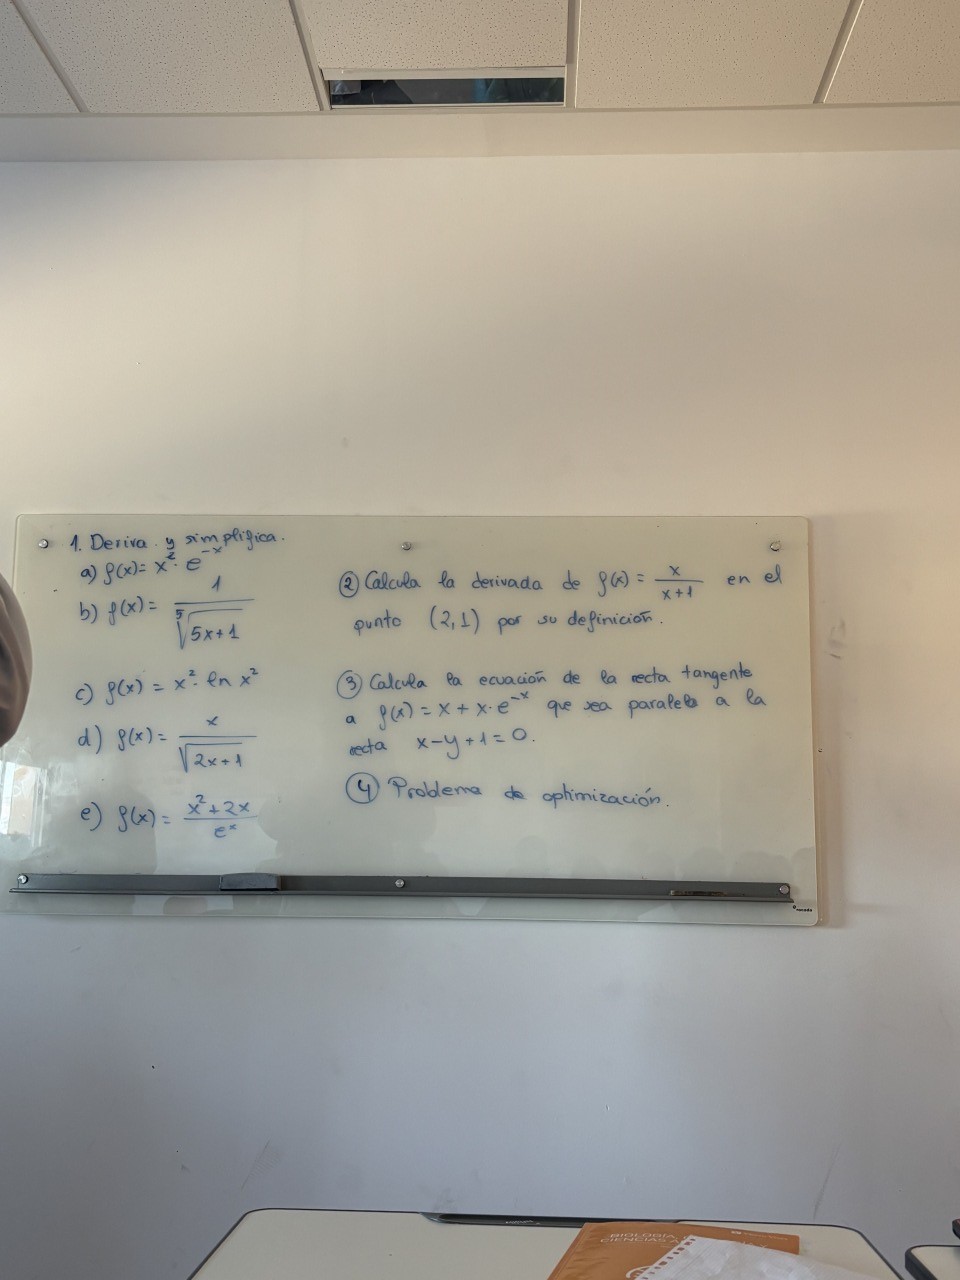 1. Deriva y simplifica.
a) f(x) = x² · e^-x
b) f(x) = 1 / ⁵√(5x+1)
c) f(x) = x² · ln x²
d) f(x) = x / √(2x+1)
e) f(x) = (x²+2x) / e^x
② Calcula la derivada de f(x) = x / (x+1) en el
punto (2,1) por su definición.
③ Calcula la ecuación de la recta tangente
a f(x) = x + x·e^-x que sea paralela a la
recta x-y+1=0.
④ Problema de optimización.
BIOLOGÍA,
CIENCIAS